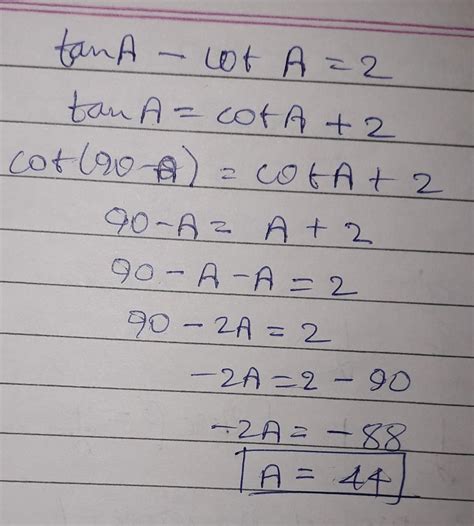 tanA - cot A = 2
tan A = cotA + 2
cot(90-A) = cotA + 2
90-A = A + 2
90 - A - A = 2
90 - 2A = 2
-2A = 2 - 90
-2A = -88
A = 44